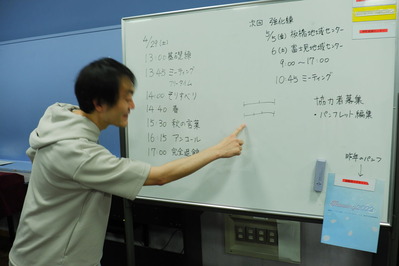 4/29(土)
13:00 基礎練
13:45 ミーティング
14:00 そりすべり
14:40 春
15:30 秋の言葉
16:15 アンコール
17:00 完全退館
次回 強化練
5/5(金) 板橋地域センター
6(土) 富士見地域センター
9:00～17:00
10:45 ミーティング
協力者募集
・パンフレット編集
昨年のパンフ